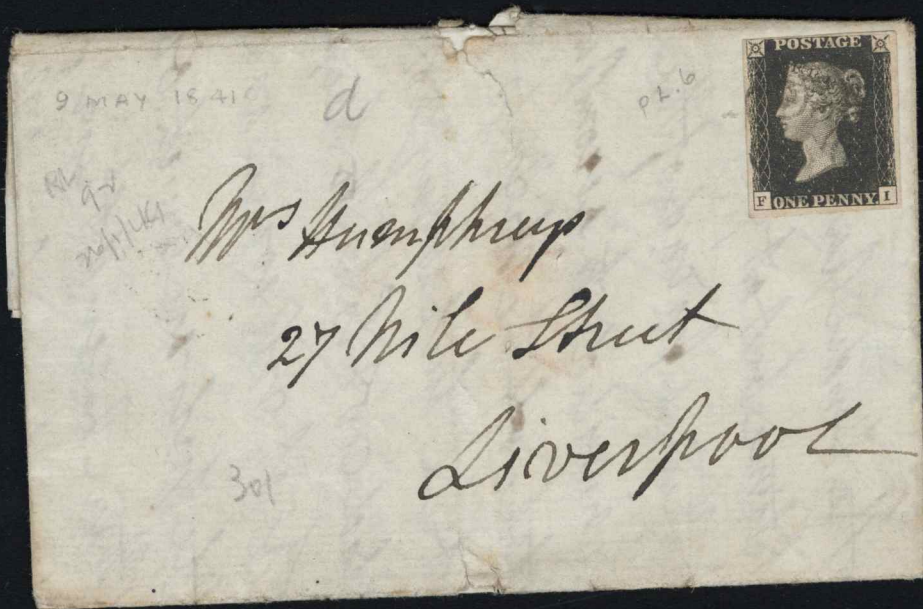 9 MAY 1841
d
PL.6
POSTAGE
F ONE PENNY. I
Mrs Humphreys
27 Nile Street
Liverpool
301